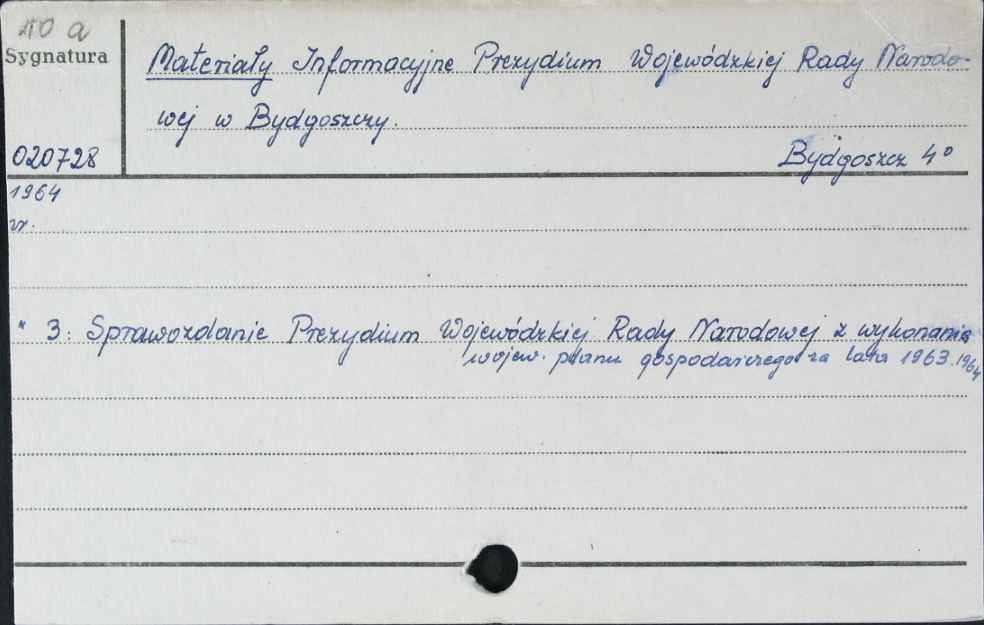 40 a
Sygnatura
Materiały Informacyjne Prezydium Wojewódzkiej Rady Narodo-
wej w Bydgoszczy.
020728
Bydgoszcz 4°
1964
nr.
" 3: Sprawozdanie Prezydium Wojewódzkiej Rady Narodowej z wykonania
wojew. planu gospodarczego za lata 1963.1964